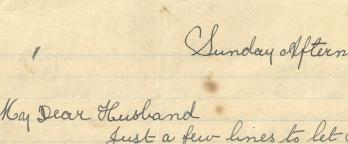 " Sunday Aftern
My Dear Husband
Just a few lines to let